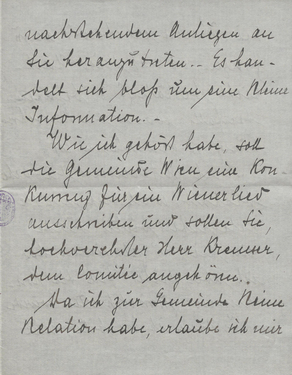 nachstehendem Anliegen an
Sie heranzutreten. – Es han-
delt sich bloß um eine kleine
Information. –
Wie ich gehört habe, soll
die Gemeinde Wien eine Kon-
kurrenz für ein Wienerlied
ausschreiben und sollen Sie,
hochverehrter Herr Kremser,
dem Comitée angehören.
Da ich zur Gemeinde keine
Relation habe, erlaube ich mir